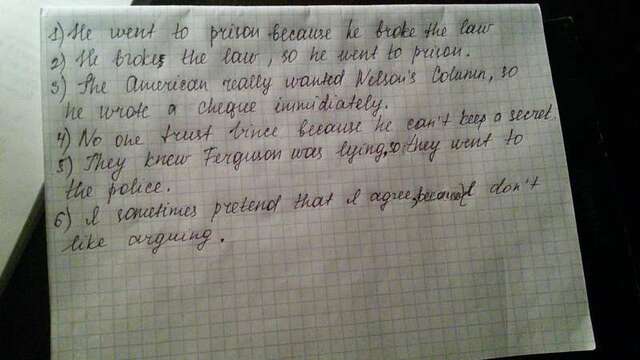 1) He went to prison because he broke the law
2) He broke the law, so he went to prison.
3) The American really wanted Nelson's Column, so
he wrote a cheque immidiately.
4) No one trust Vince because he can't keep a secret.
5) They knew Ferguson was lying, so they went to
the police.
6) I sometimes pretend that I agree because I don't
like arguing.